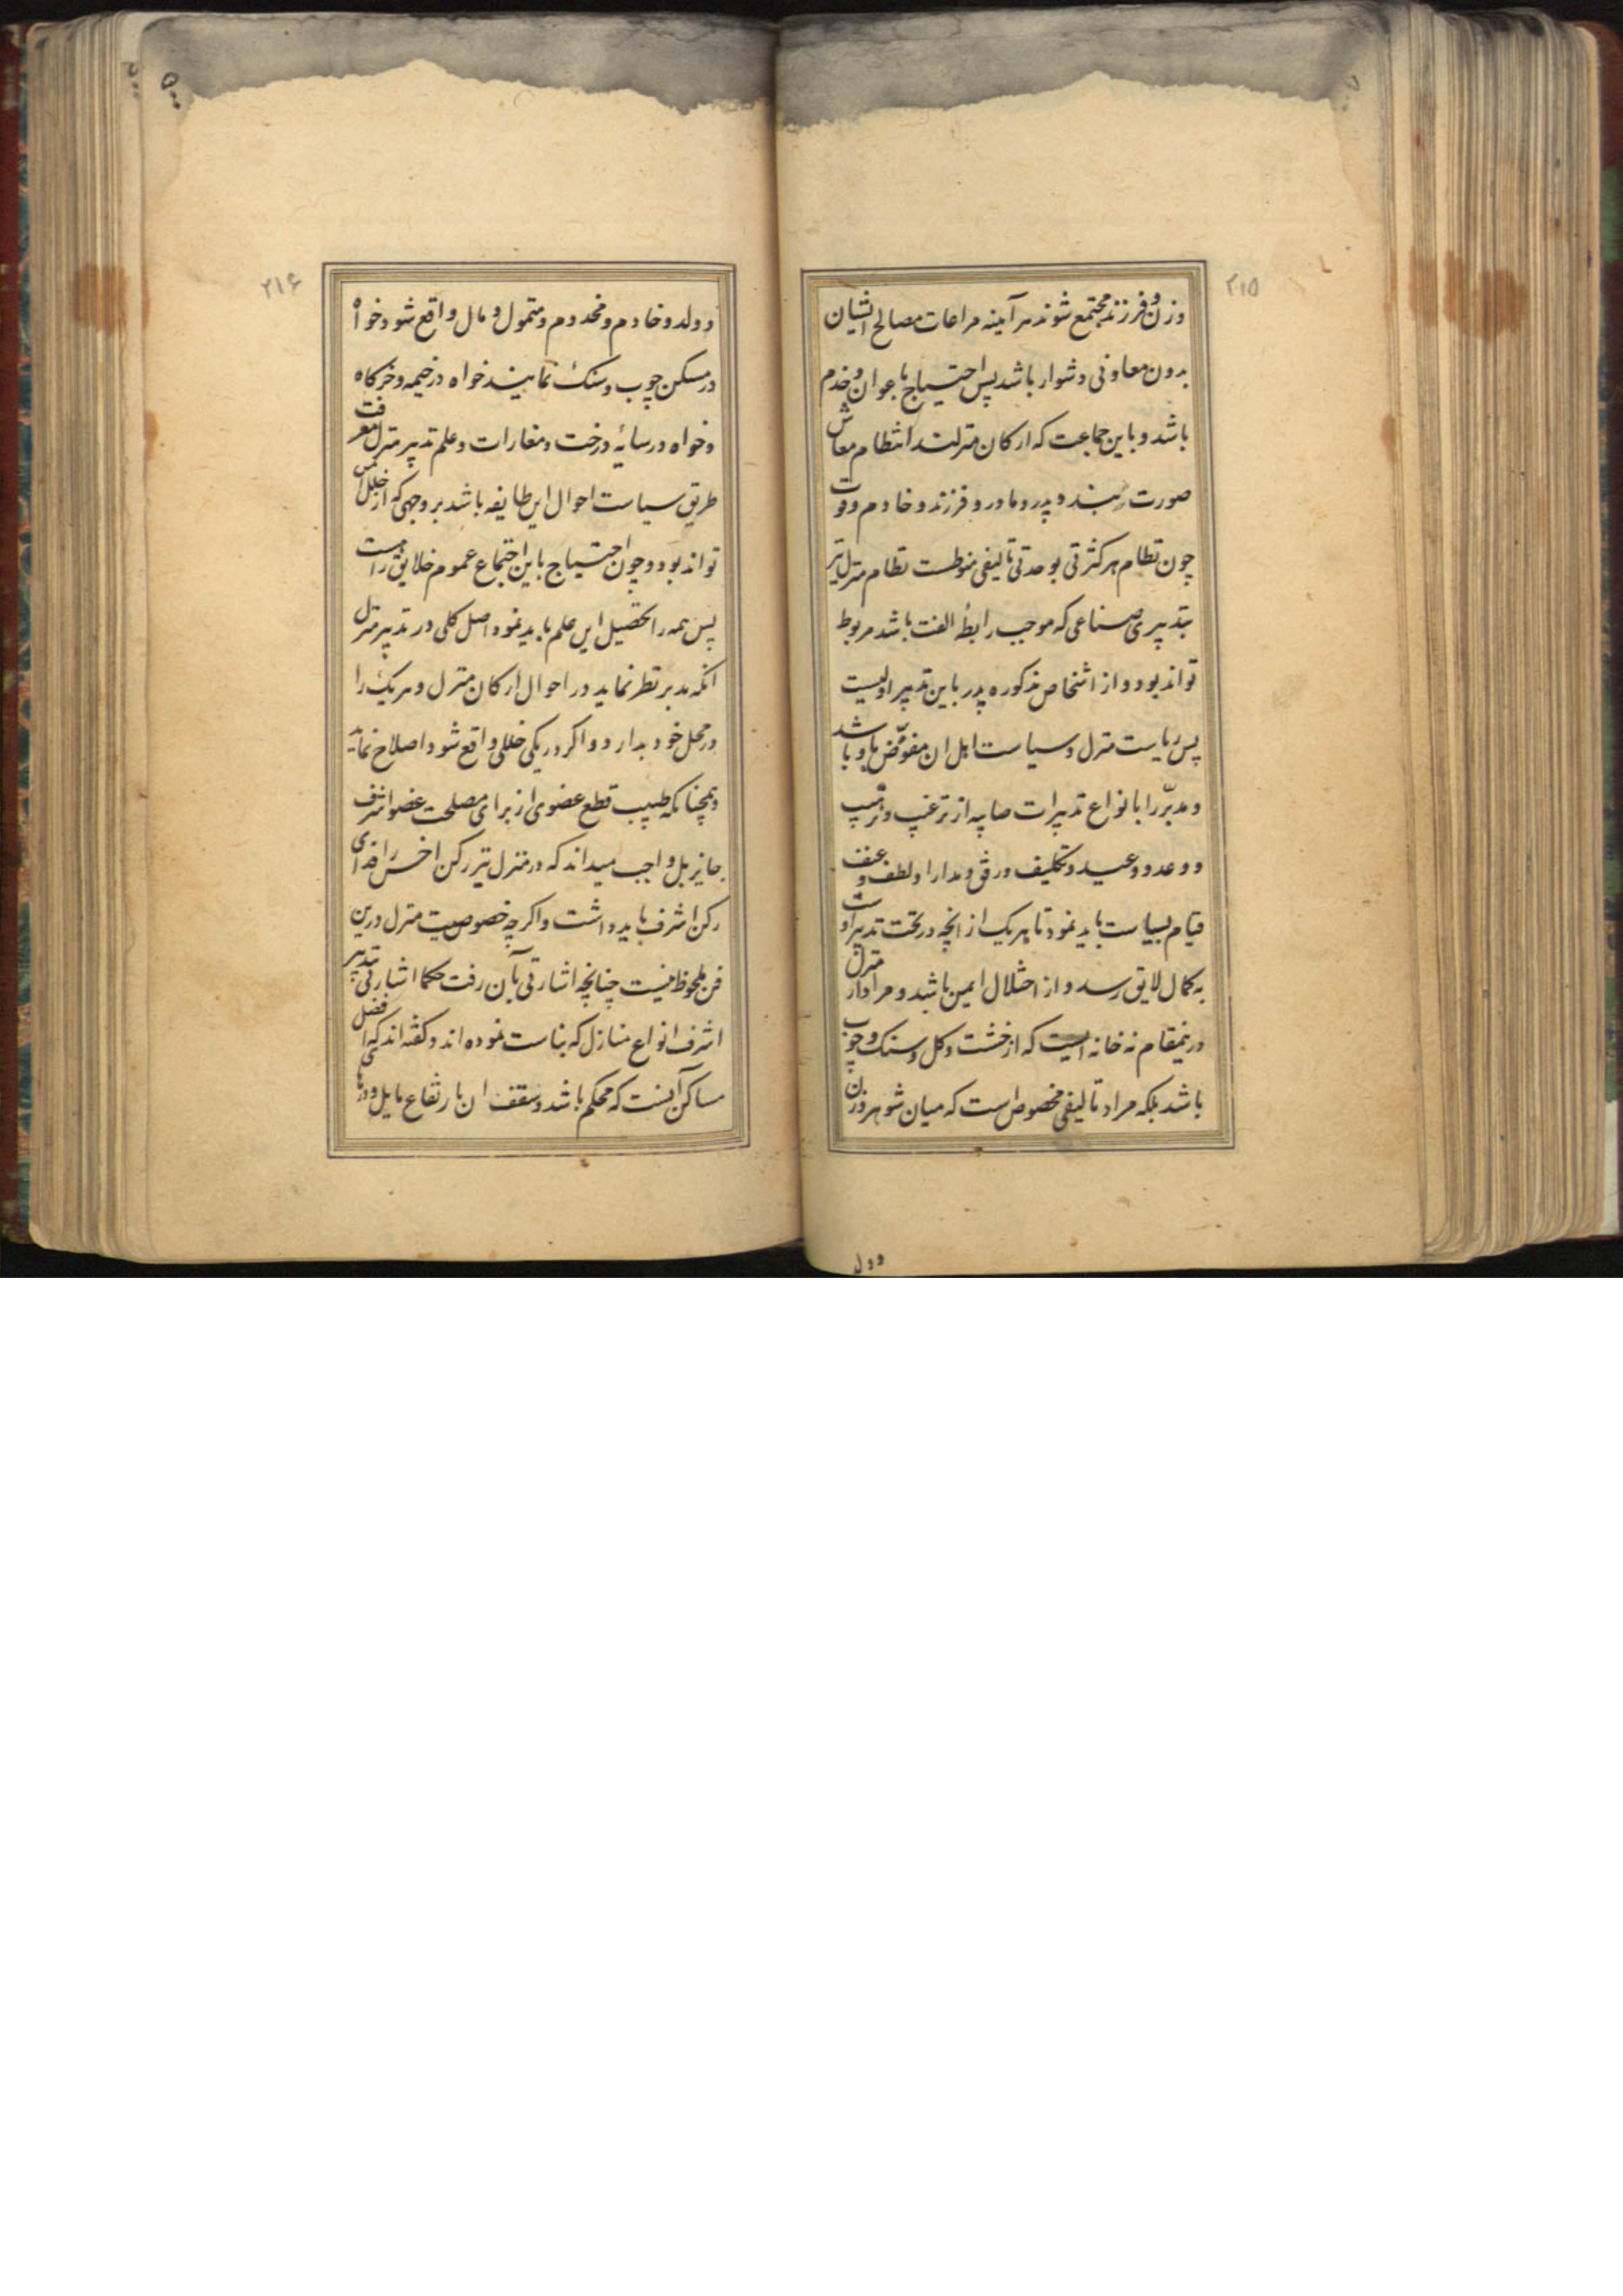 ۲۱۵
وزن و فرزند مجتمع شوند هر آینه مراعات مصالح ایشان
بدون معاونی دشوار باشد پس احتیاج باعوان و خدم
باشد و باین جماعت که ارکان منزلند انتظام معاش
صورت بندد و پدر و مادر و فرزند و خادم و قوت
چون نظام هر کثرتی بوحدتی تالیفی منوطست نظام منزل نیز
بتدبیری صناعی که موجب رابطهٔ الفت باشد مربوط
تواند بود و از اشخاص مذکوره پدر باین تدبیر اولیست
پس ریاست منزل و سیاست اهل ان مفوّض باو باشد
و مدبّر را بانواع تدبیرات صایبه از ترغیب و ترهیب
و وعد و وعید و تکلیف و رفق و مدارا و لطف و عنف
قیام بسیاست باید نمود تا هر یک از انچه در تحت تدبیر اوست
به کمال لایق رسد و از اختلال ایمن باشد و مراد از منزل
درینمقام نه خانه ایست که از خشت و کل و سنک و چوب
باشد بلکه مراد تالیفی مخصوص است که میان شوهر و زن
و ولد
۲۱۶
و ولد و خادم و مخدوم و متمول و مال واقع شود خواه
در مسکن چوب و سنک نمایند خواه در خیمه و خرکاه
و خواه در سایهٔ درخت و مغارات و علم تدبیر منزل معرفت
طریق سیاست احوال این طایفه باشد بر وجهی که از خلل ایمن
تواند بود و چون احتیاج باین اجتماع عموم خلایق راست
پس همه را تحصیل این علم باید نمود اصل کلی در تدبیر منزل
انکه مدبر نظر نماید در احوال ارکان منزل و هر یک را
در محل خود بدارد و اکر در یکی خللی واقع شود اصلاح نماید
و همچنانکه طبیب قطع عضوی از برای مصلحت عضو اشرف
جایز بل واجب میداند که در منزل نیز رکن اخس را فدای
رکن اشرف باید داشت و اکر چه خصوصیت منزل درین
فن ملحوظ نیست چنانچه اشارتی بآن رفت حکما اشارتی بتدبیر
اشرف انواع منازل که بناست نموده اند و کفته اند که افضل
مساکن آنست که محکم باشد و سقف ان بارتفاع مایل و درها